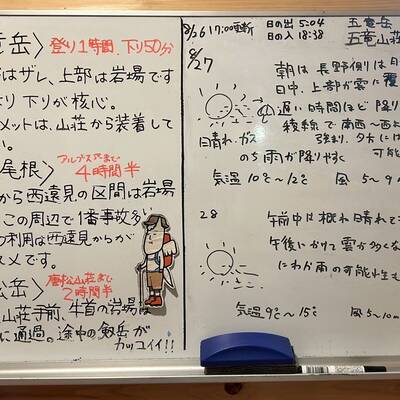 竜岳〉登り1時間、下り50分
はザレ、上部は岩場です
り下りが核心。
メットは、山荘から装着して
い。
尾根〉アルプス平まで
4時間半
から西遠見の区間は岩場
この周辺で1番事故多
の利用は西遠見からが
スメです。
松岳〉唐松山荘まで
2時間半
山荘手前、牛首の岩場は
に通過。途中の剱岳が
カッコイイ!!
8/26 17:00更新
日の出 5:04
日の入 18:38
五竜岳
五竜山荘
8/27
朝は長野側は日
日中、上部が雲に覆
遅い時間ほど降り
稜線で南西〜西
強まり、夕方には
可能
日晴れ・ガス
のち雨が降りやすく
気温 10℃〜12℃ 風 5〜9
28
午前中は概ね晴れて
午後にかけて雲が多くな
にわか雨の可能性も
気温 9℃〜15℃ 風 5〜10m